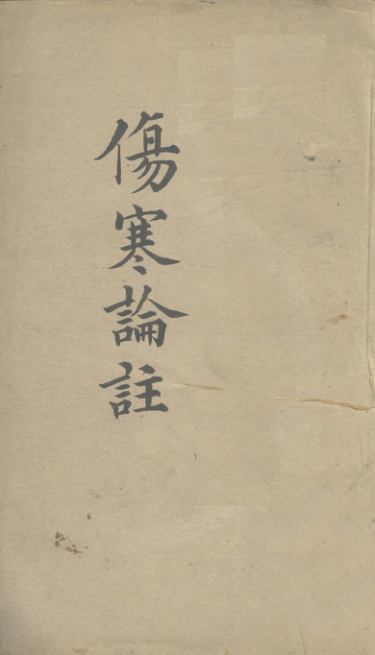 傷寒論註